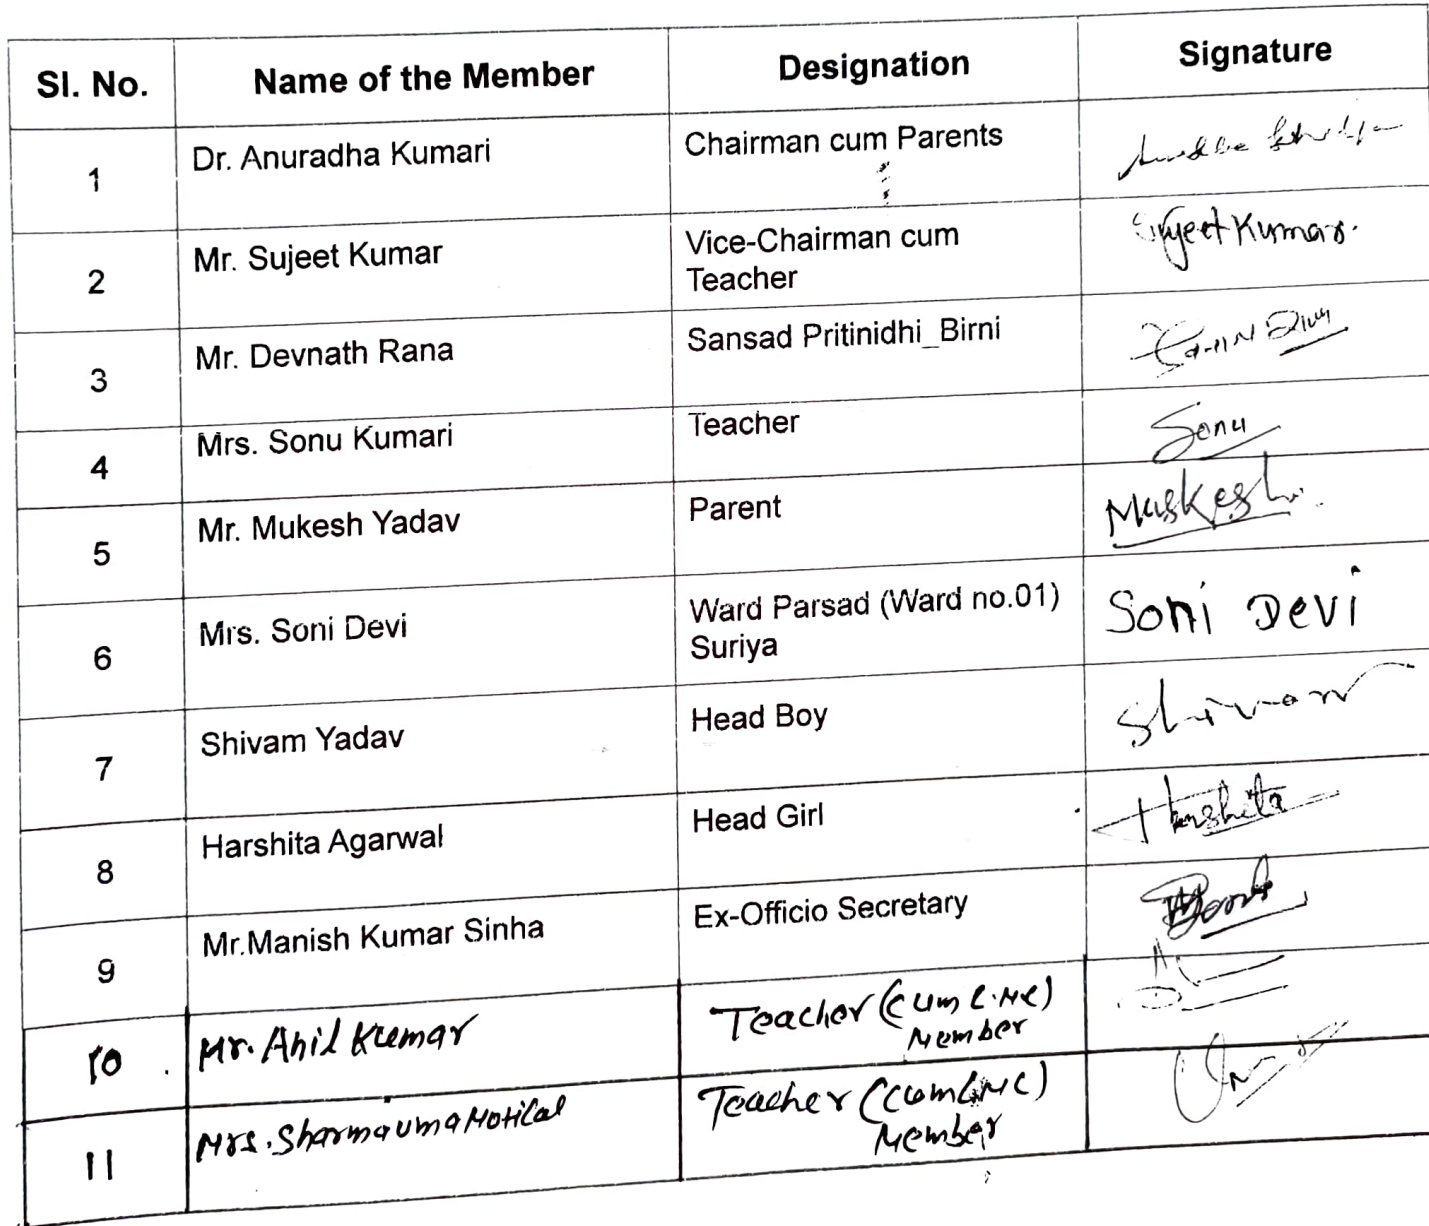 Sl. No. Name of the Member Designation Signature
1 Dr. Anuradha Kumari Chairman cum Parents
2 Mr. Sujeet Kumar Vice-Chairman cum Sujeet Kumar.
Teacher
3 Mr. Devnath Rana Sansad Pritinidhi_Birni
4 Mrs. Sonu Kumari Teacher Sonu
5 Mr. Mukesh Yadav Parent Muskesh
6 Mrs. Soni Devi Ward Parsad (Ward no.01) Soni Devi
Suriya
7 Shivam Yadav Head Boy Shivam
8 Harshita Agarwal Head Girl Harshita
9 Mr.Manish Kumar Sinha Ex-Officio Secretary
10 Mr. Anil Kumar Teacher (cum L.MC)
Member
11 Mrs. Sharma uma Motilal Teacher (cum LMC)
Member